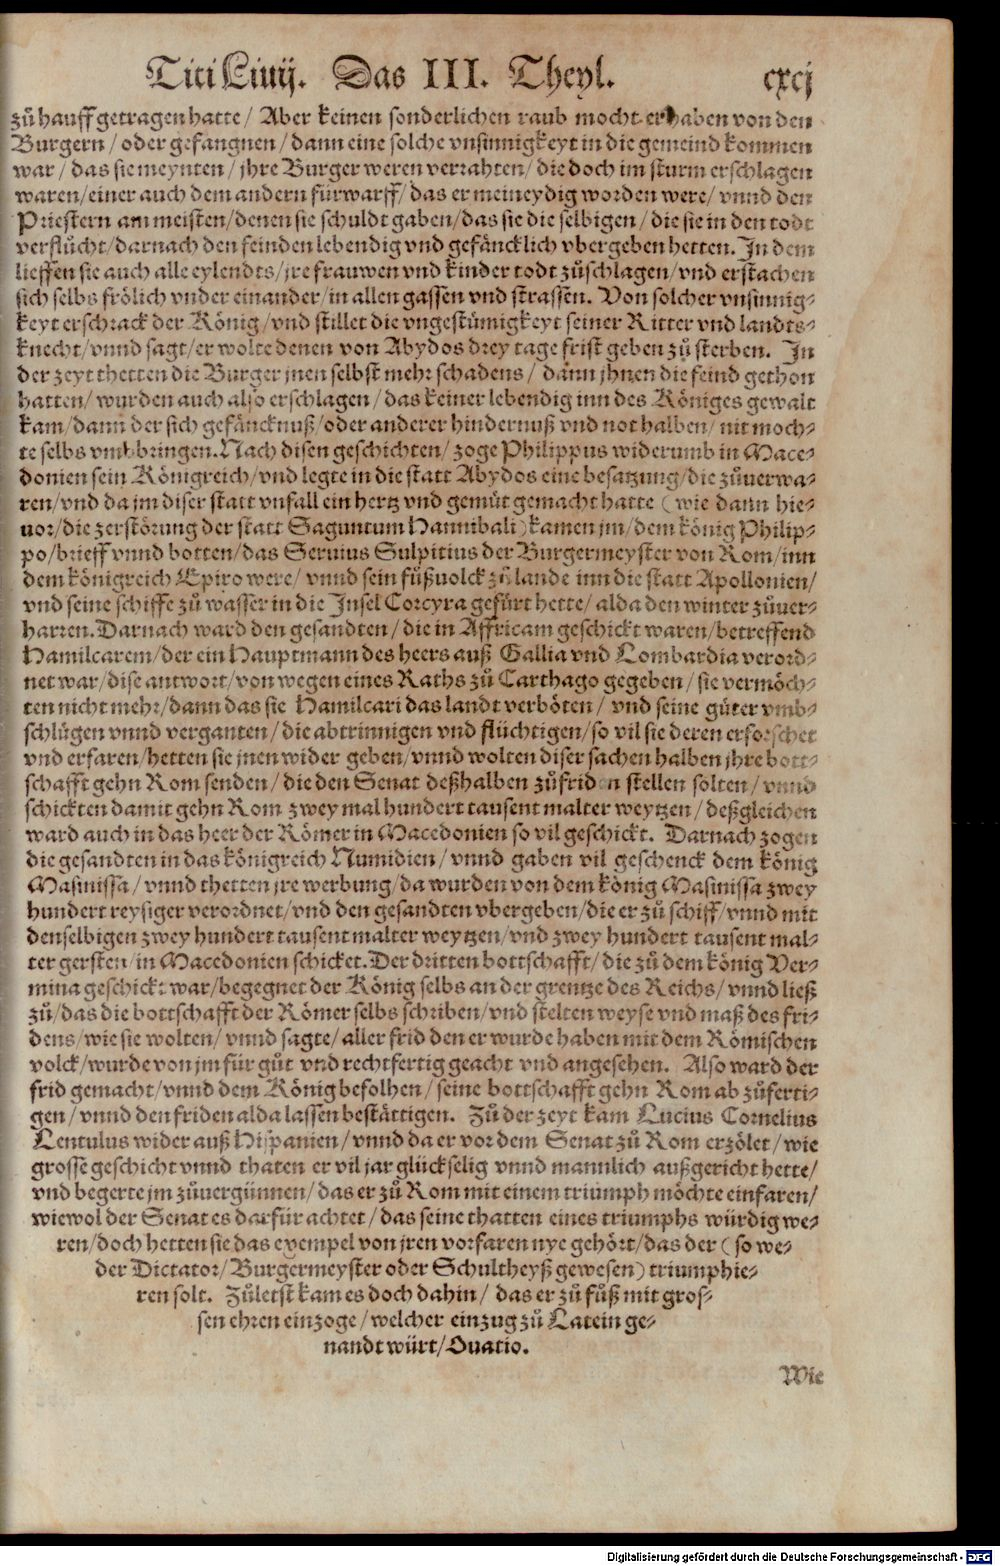 Titi Liuij. Das III. Theyl. cxcj
zů hauff getragen hatte / Aber keinen sonderlichen raub mocht er haben von den
Burgern / oder gefangnen / dann eine solche vnsinnigkeyt in die gemeind kommen
war / das sie meynten / jhre Burger weren verrahten / die doch im sturm erschlagen
waren / einer auch dem andern fürwarff / das er meineydig worden were / vnnd den
Priestern am meisten / denen sie schuldt gaben / das sie die selbigen / die sie in den todt
verflücht / darnach den feinden lebendig vnd gefäncklich vbergeben hetten. In dem
lieffen sie auch alle eylendts / jre frauwen vnd kinder todt zůschlagen / vnd erstachen
sich selbs frölich vnder einander / in allen gassen vnd strassen. Von solcher vnsinnig-
keyt erschrack der König / vnd stillet die vngestümigkeyt seiner Ritter vnd landts-
knecht / vnnd sagt / er wolte denen von Abydos drey tage frist geben zů sterben. In
der zeyt thetten die Burger jnen selbst mehr schadens / dann jhnen die feind gethon
hatten / wurden auch also erschlagen / das keiner lebendig inn des Königes gewalt
kam / dann der sich gefäncknuß / oder anderer hindernuß vnd not halben / nit moch-
te selbs vmbbringen. Nach disen geschichten / zoge Philippus widerumb in Mace-
donien sein Königreich / vnd legte in die statt Abydos eine besatzung / die zůuerwa-
ren / vnd da jm diser statt vnfall ein hertz vnd gemüt gemacht hatte ( wie dann hie-
uor / die zerstörung der statt Saguntum Hannibali ) kamen jm / dem könig Philip-
po / brieff vnnd botten / das Seruius Sulpitius der Burgermeyster von Rom / inn
dem königreich Epiro were / vnnd sein fůßuolck zů lande inn die statt Apollonien /
vnd seine schiffe zů wasser in die Insel Corcyra gefürt hette / alda den winter zůuer-
harren. Darnach ward den gesandten / die in Affricam geschickt waren / betreffend
Hamilcarem / der ein Hauptmann des heers auß Gallia vnd Lombardia verord-
net war / dise antwort / von wegen eines Raths zů Carthago gegeben / sie vermöch-
ten nicht mehr / dann das sie Hamilcari das landt verböten / vnd seine güter vmb-
schlügen vnnd verganten / die abtrinnigen vnd flüchtigen / so vil sie deren erforschet
vnd erfaren / hetten sie jnen wider geben / vnnd wolten diser sachen halben jhre bott-
schafft gehn Rom senden / die den Senat deßhalben zůfriden stellen solten / vnnd
schickten damit gehn Rom zwey mal hundert tausent malter weytzen / deßgleichen
ward auch in das heer der Römer in Macedonien so vil geschickt. Darnach zogen
die gesandten in das königreich Numidien / vnnd gaben vil geschenck dem könig
Masinissa / vnnd thetten jre werbung / da wurden von dem könig Masinissa zwey
hundert reysiger verordnet / vnd den gesandten vbergeben / die er zů schiff / vnnd mit
denselbigen zwey hundert tausent malter weytzen / vnd zwey hundert tausent mal-
ter gersten / in Macedonien schicket. Der dritten bottschafft / die zů dem könig Ver-
mina geschickt war / begegnet der König selbs an der grentze des Reichs / vnnd ließ
zů / das die bottschafft der Römer selbs schriben / vnd stelten weyse vnd maß des fri-
dens / wie sie wolten / vnnd sagte / aller frid den er wurde haben mit dem Römischen
volck / wurde von jm für gůt vnd rechtfertig geacht vnd angesehen. Also ward der
frid gemacht / vnnd dem König befolhen / seine bottschafft gehn Rom ab zůferti-
gen / vnnd den friden alda lassen bestättigen. Zů der zeyt kam Lucius Cornelius
Lentulus wider auß Hispanien / vnnd da er vor dem Senat zů Rom erzölet / wie
grosse geschicht vnnd thaten er vil jar glückselig vnnd mannlich außgericht hette /
vnd begerte jm zůuergünnen / das er zů Rom mit einem triumph möchte einfaren /
wiewol der Senat es darfür achtet / das seine thatten eines triumphs würdig we-
ren / doch hetten sie das exempel von jren vorfaren nye gehört / das der ( so we-
der Dictator / Burgermeyster oder Schultheyß gewesen ) triumphie-
ren solt. Zůletst kam es doch dahin / das er zů fůß mit gros-
sen ehren einzoge / welcher einzug zů Latein ge-
nandt würt / Ouatio.
Wie
Digitalisierung gefördert durch die Deutsche Forschungsgemeinschaft - DFG